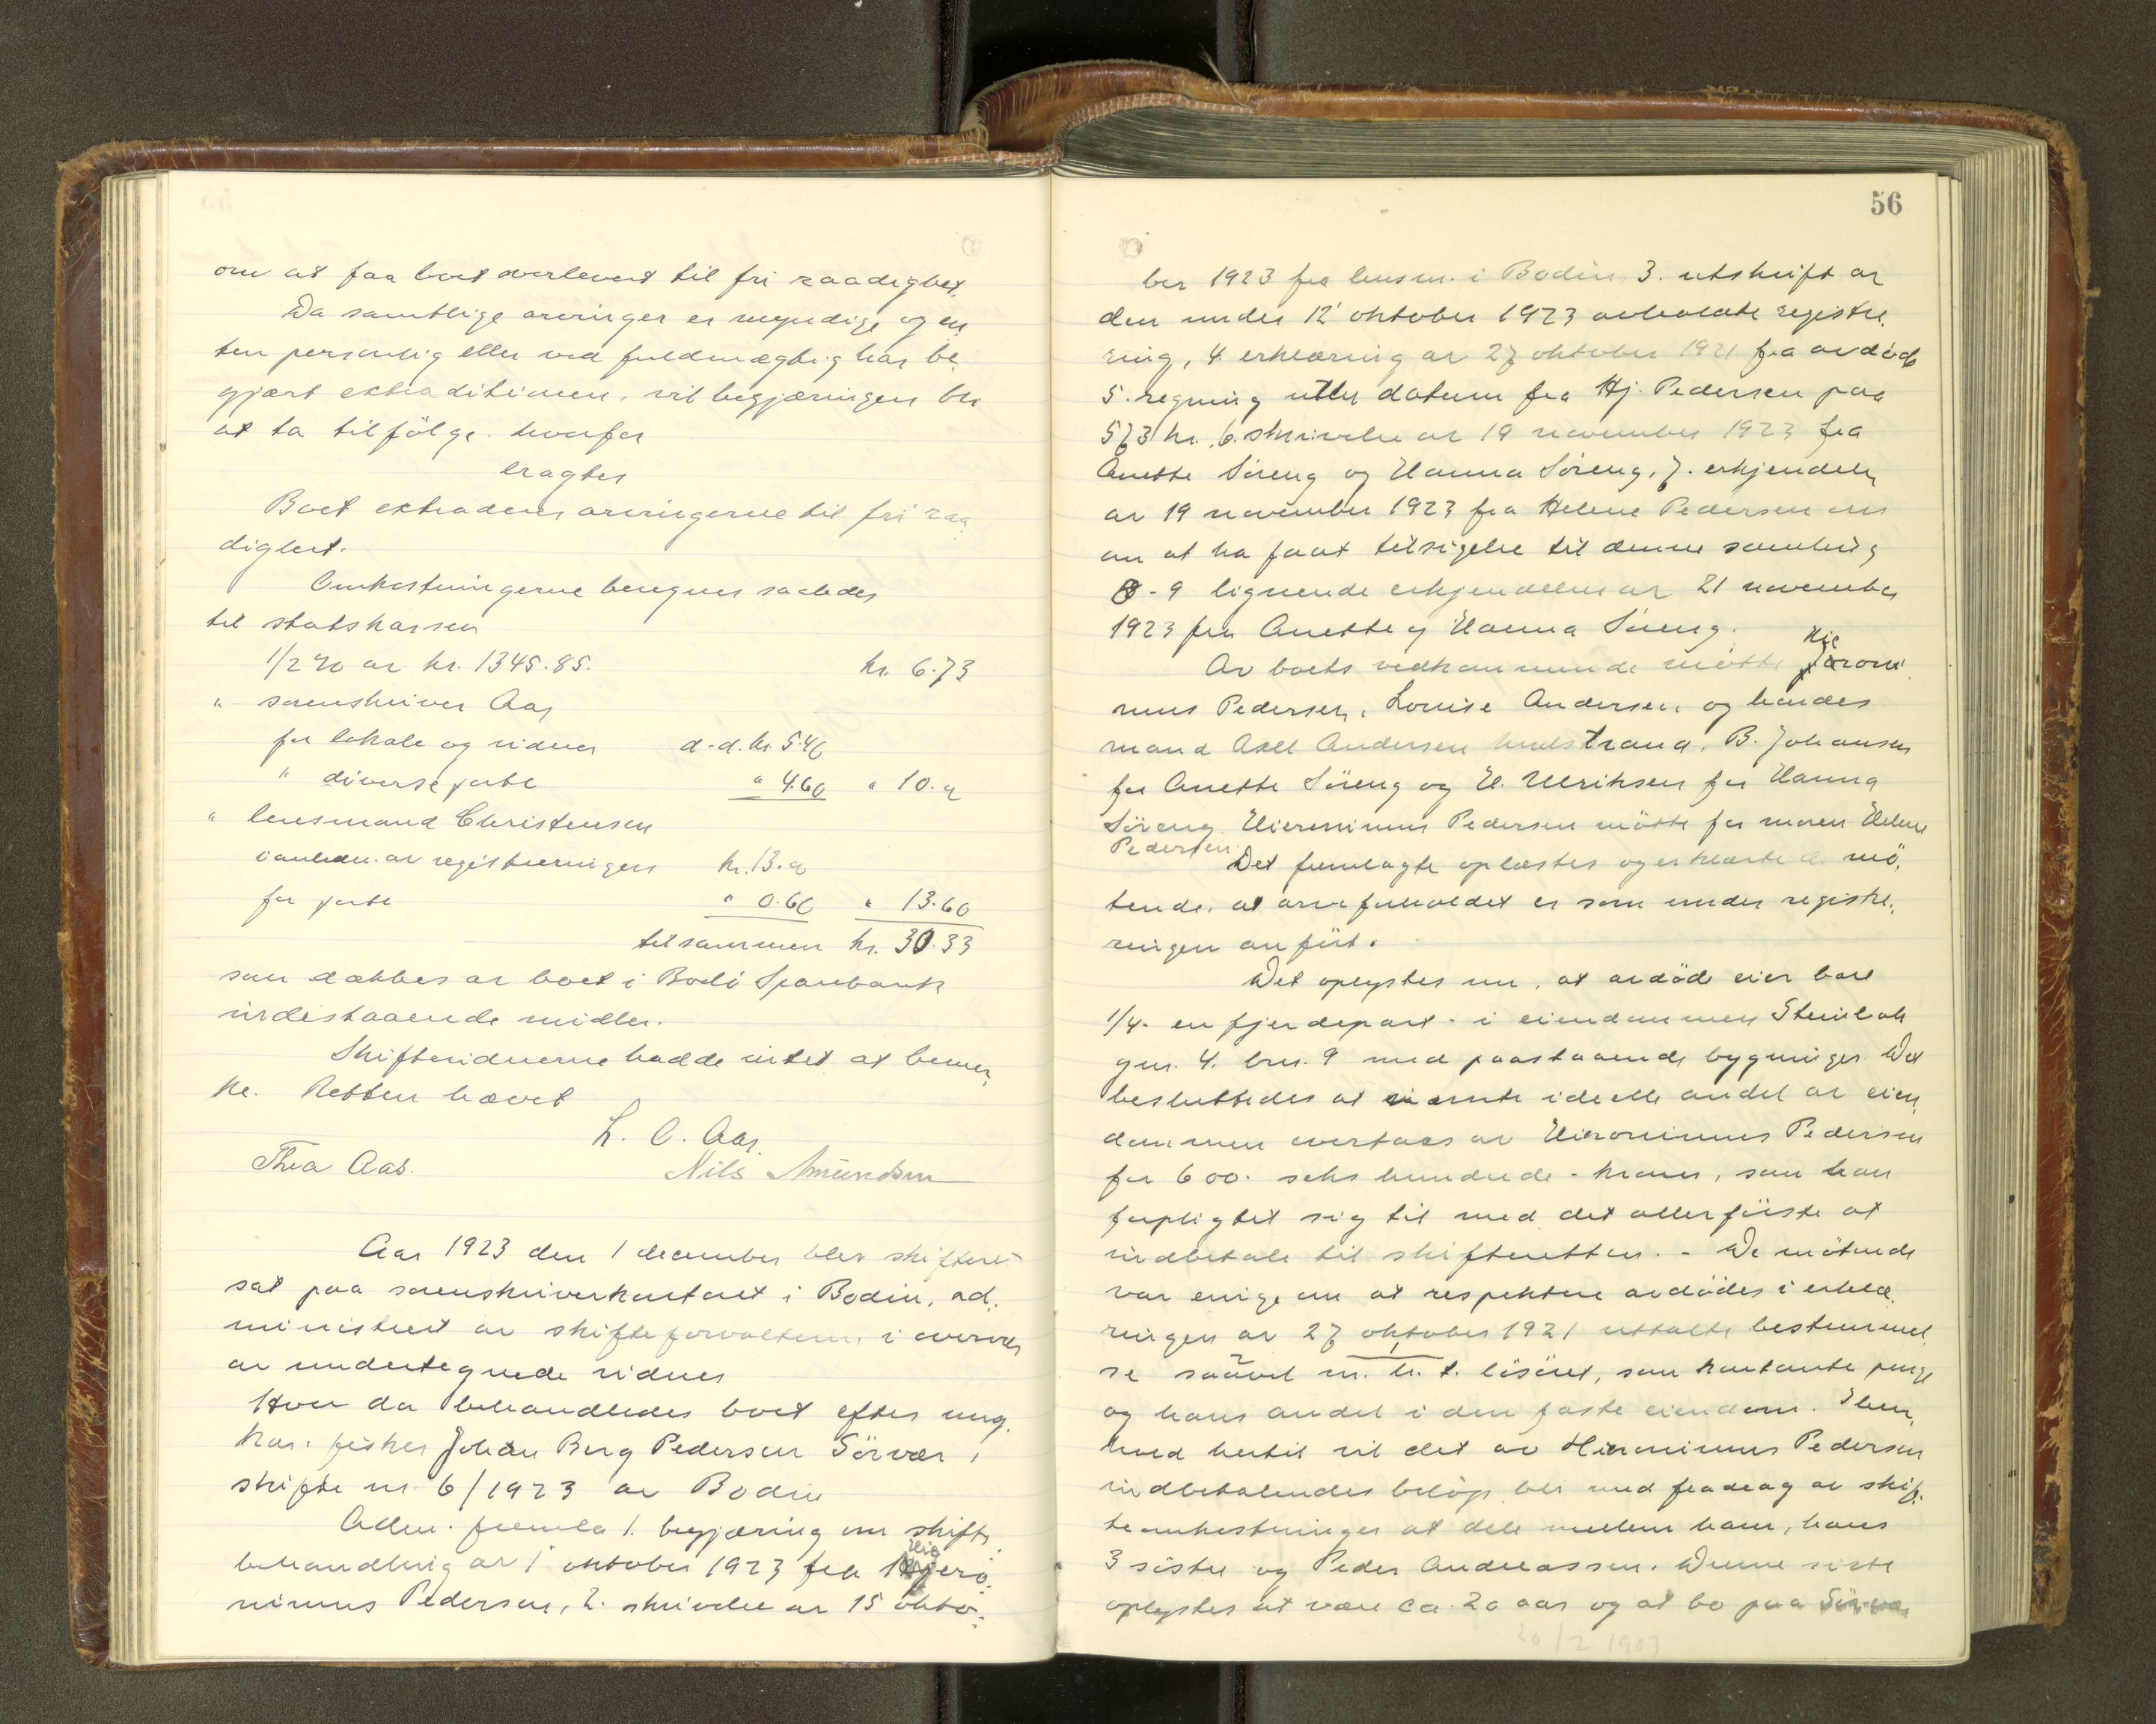 om at faa boet overlevert til fri raadighet.
Da samtlige arvinger er myndige og en
ten personlig eller ved fuldmægtig har be-
gjært extraditionen, vil begjæringen bli
at ta tilfölge. hvorfor
eragtes
Boet extraderes arvingerne til fri raa
dighet.
Omkostningerne beregnes saaledes
til statskassen
1/2 % av kr. 1345.85. kr. 6.73
" sorenskriver Aas
for lokale og vidner d.d. kr. 5.40
" diverse porto " 4.60 " 10.
" lensmand Christensen
i anledn. av registreringen kr. 13.
for porto " 0.60 " 13.60
tilsammen kr. 30.33
som dækkes av boet i Bodö Sparebank
indestaaende midler.
Skiftevidnerne hadde intet at bemer,
ke. Retten hævet
L. C. Aas
Thea Aas. Nils Amundsen
Aar 1923 den 1 december blev skifteret
sat paa sorenskriverkontoret i Bodin, ad,
ministrert av skifteforvalteren i overvær
av undertegnede vidner
Hvor da behandledes boet efter ung,
kar, fisker Johan Berg Pedersen Sörvær,
skifte nr. 6/1923 av Bodin
Adm. fremla 1. begjæring om skifte
behandling av 1 oktober 1923 fra Hie ro,
nimus Pedersen, 2. skrivelse av 15 okto-
56
ber 1923 fra lensm. i Bodin, 3. utskrift av
den under 12 oktober 1923 avholdte registre,
ring, 4. erklæring av 27 oktober 1921 fra avdöde
5. regning uten datum fra Hj. Pedersen paa
573 kr. 6. skrivelse av 19 november 1923 fra
Anette Söreng og Hanna Söreng, 7. erkjendelse
av 19 november 1923 fra Helene Pedersen om
om at ha faat tilsigelse til denne samling
8-9 lignende erkjendelser av 21 november
1923 fra Anette og Hanna Söreng.
Av boets vedkommende mötte Hie roni
mus Pedersen, Lovise Andersen og hendes
mand Axel Andersen B. Johansen
for Anette Söreng og H. Ulriksen for Hanna
Söreng. Hieronimus Pedersen mötte for moren Helene
Pedersen
Det fremlagte oplæstes og erklærte de mö,
tende, at arveforholdet er som under registre,
ringen anfört.
Det oplystes nu, at avdöde eier bare
1/4 - en fjerdepart - i eiendommen
gnr. 4. brn. 9 med paastaaende bygninger. Det
besluttedes at nævnte ideelle andel av eien,
dommen overtaes av Hieronimus Pedersen
for 600. seks hundrede - kroner, som han
forpligtet sig til med det allerförste at
indbetale til skifteretten. - De mötende
var enige om at respektere avdödes i erklæ,
ringen av 27 oktober 1921 uttalte bestemmel
se saavel m. h. t. lösöret, som kontante penge
og hans andel i den faste eiendom. I hen,
hold hertil vil det av Hieronimus Pedersen
indbetalendes belöp bli med fradrag av skif,
teomkostninger at dele mellem ham, hans
3 söstre og Peder Andreassen. Denne siste
oplystes at være ca. 20 aar og at bo paa Sörvær
20/2 1903